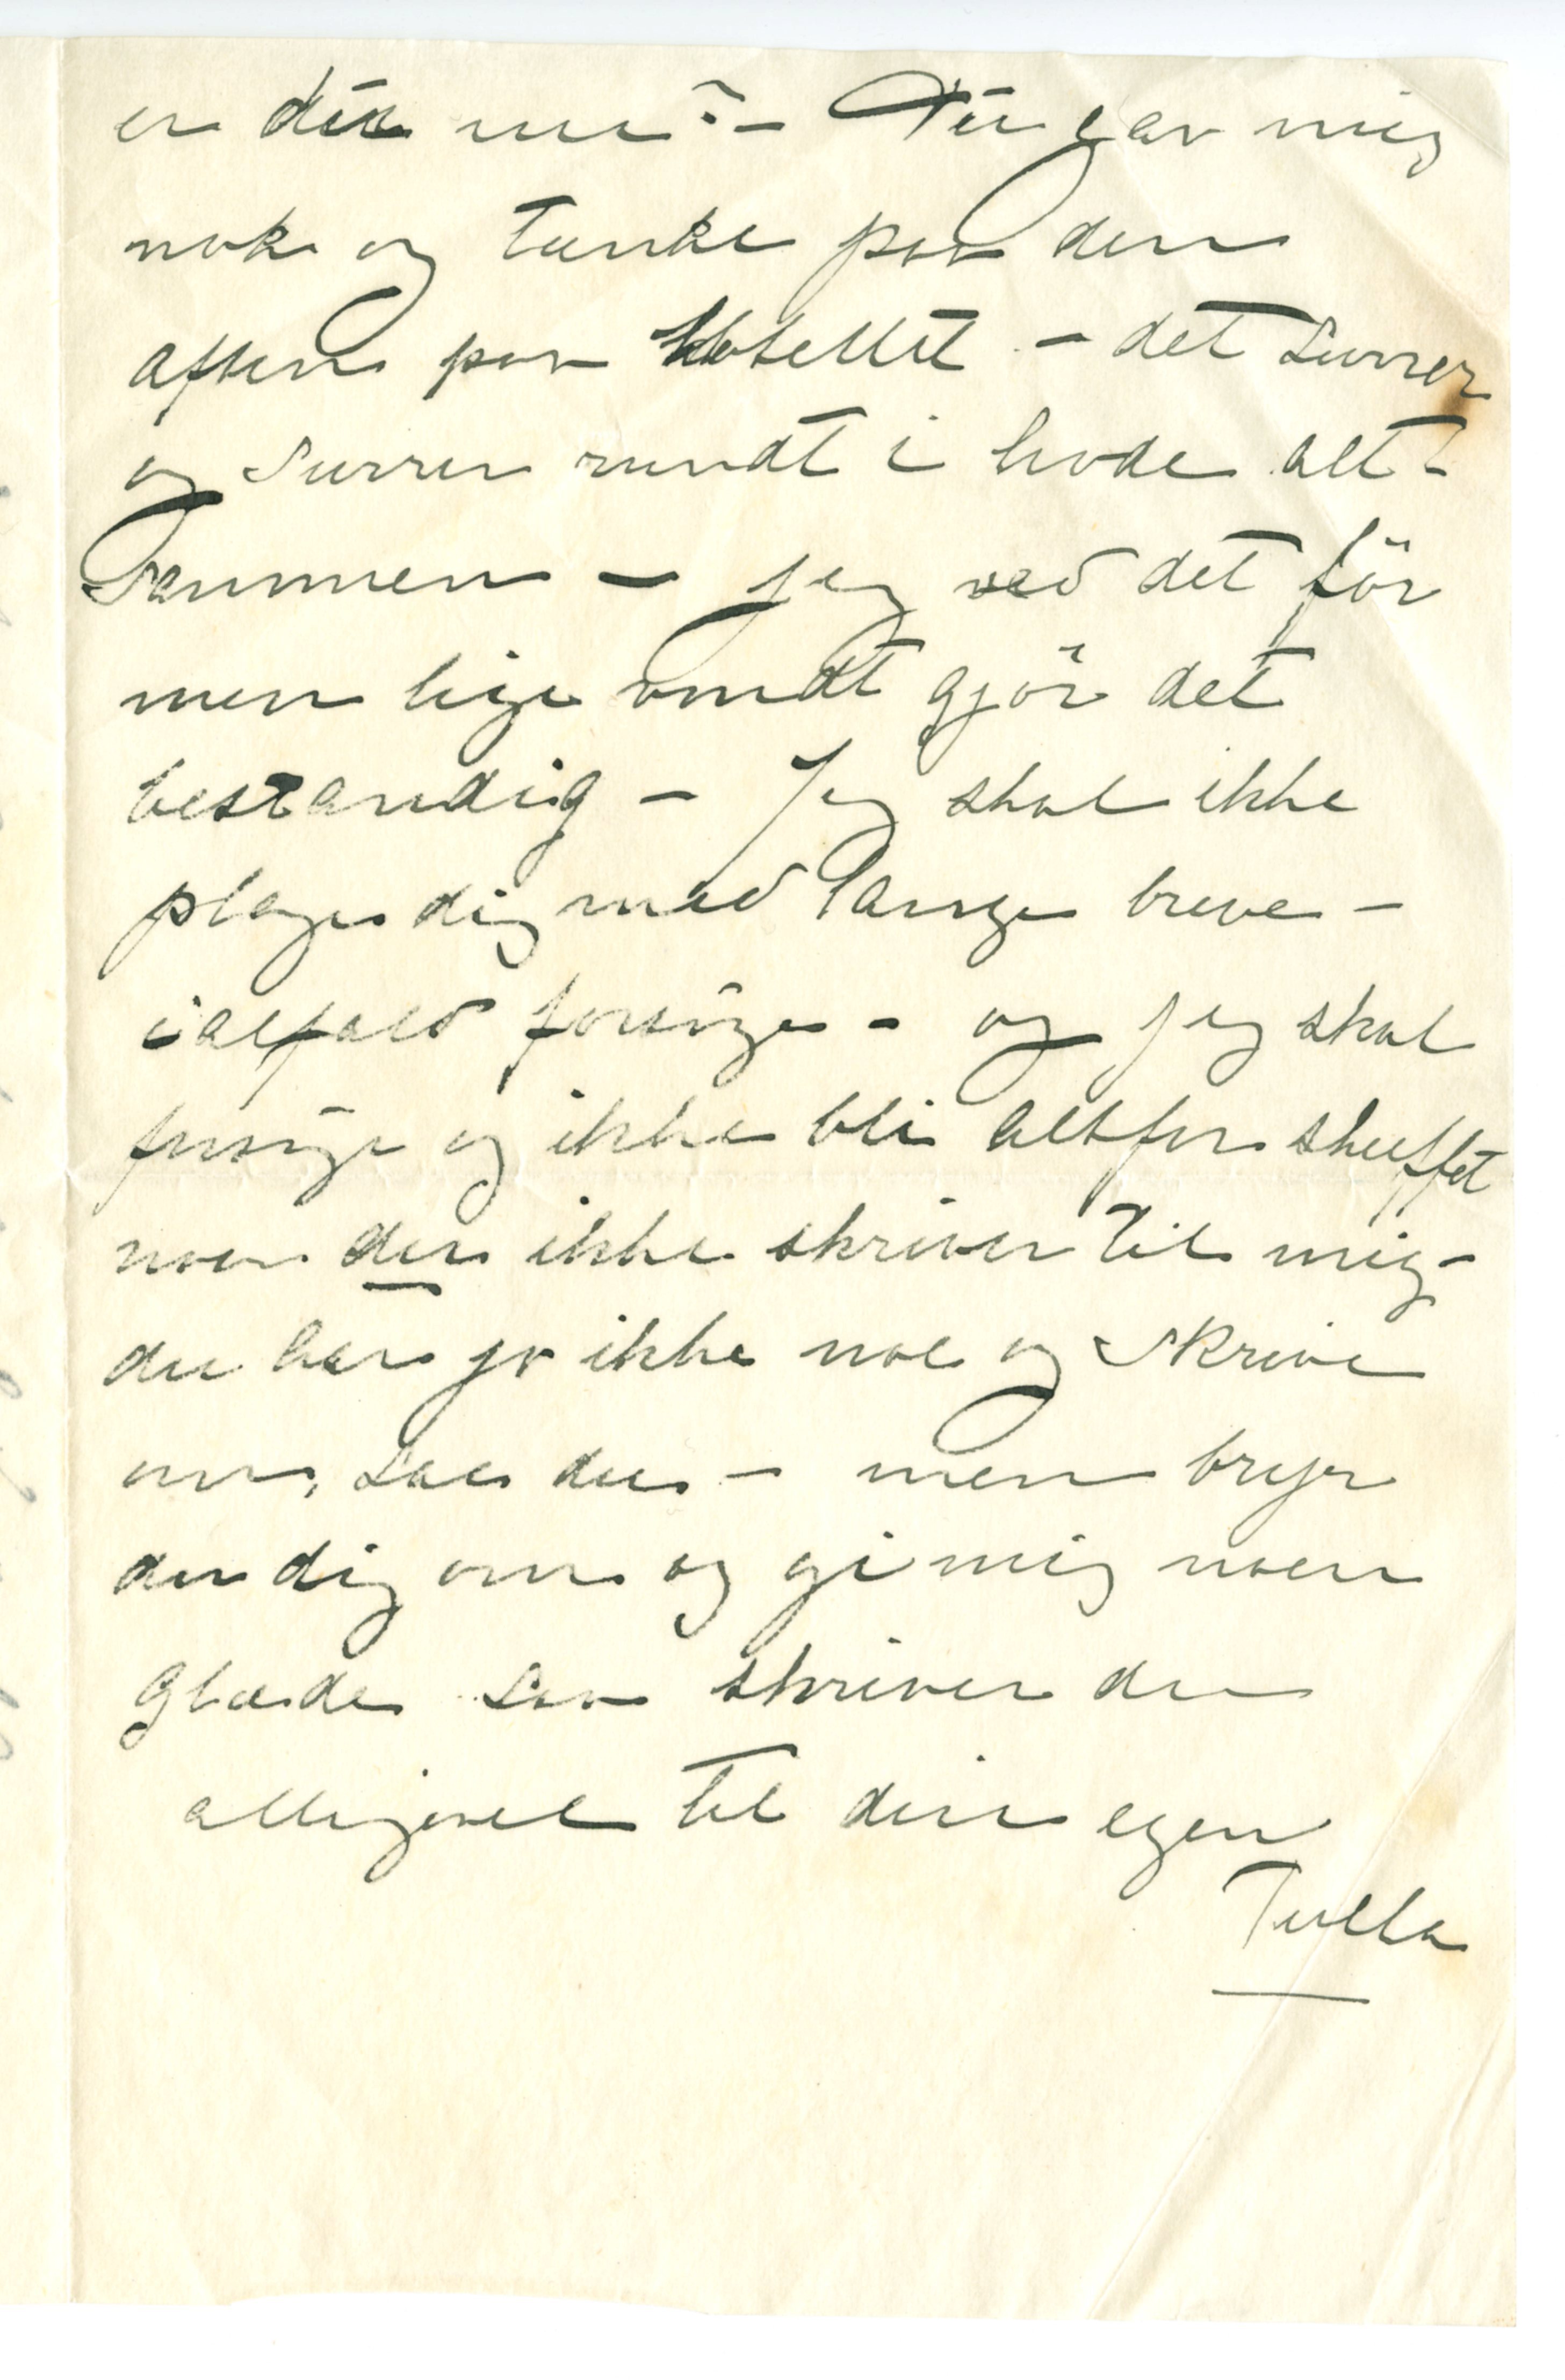 er du nu? – Du gav mig
nok og tænke paa den
aften paa Hotellet – det surrer
og surrer rundt i hode alt-
sammen – jeg ved det för
men lige ondt gjör det
bestandig – Jeg skal ikke
plage dig med lange breve –
ialfald forsöge – og jeg skal
forsöge og ikke bli altfor skuffet
naar du ikke skriver til mig –
du har jo ikke noe og skrive
om, sae du – men bryr
du dig om og gi mig noen
Glæde saa skriver du
alligevel til din egen
Tulla